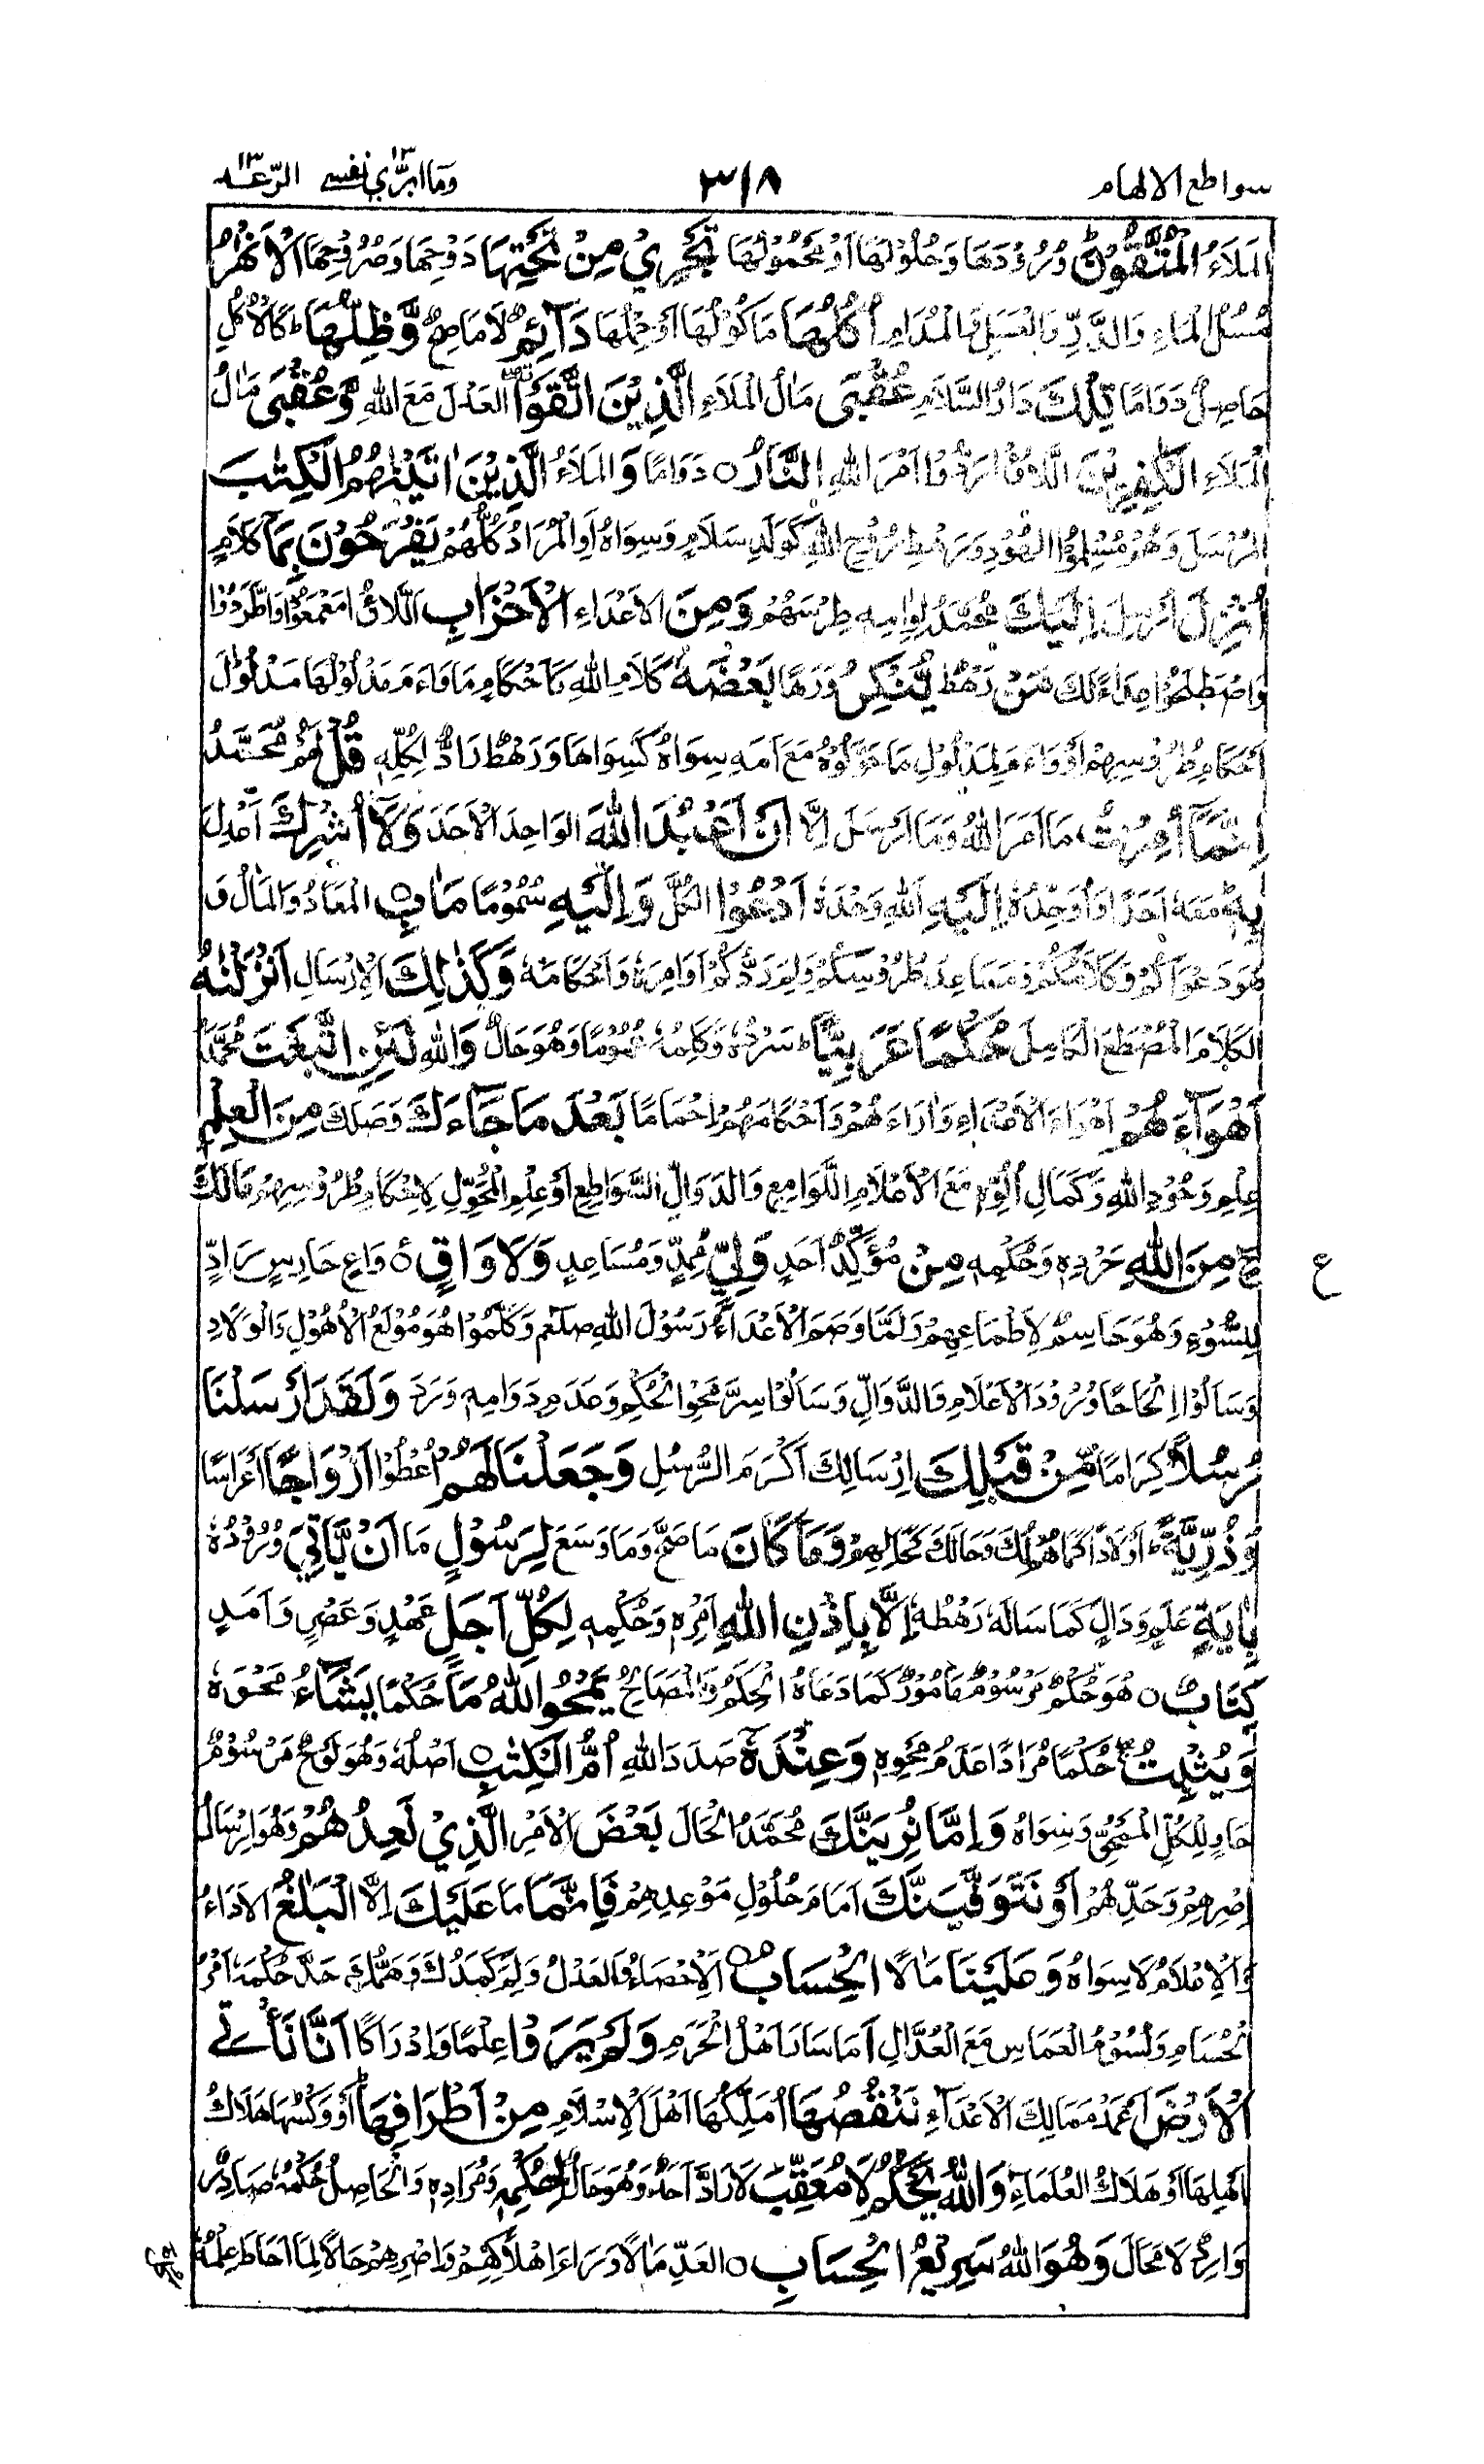 سواطع الالهام ٣١٨ وما ابرّي نفسے ١٣ الرّعد ١٣
المَلَاءُ الْمُتَّقُوْنَ وُرُوْدَهَا وَحُلُوْلَهَا اَوْ مَحْمُوْلُهَا تَجْرِيْ مِنْ تَحْتِهَا دَوْحِهَا وَصُرُوْحِهَا الْاَنْهٰرُ
مُسُلُ الْمَاءِ وَالدَّرِّ وَالْعَسَلِ وَالْمُدَامِ اُكُلُهَا مَاكُوْلُهَا اَوْ حِمْلُهَا دَآئِمٌ لَا مَاصِحٌ وَّظِلُّهَا كَالْاُكُلِ
حَاصِلٌ دَوَامًا تِلْكَ دَارُ السَّلَامِ عُقْبَى مَاٰلُ الْمَلَاءِ الَّذِيْنَ اتَّقَوْا العَدْلَ مَعَ اللهِ وَّعُقْبَى مَاٰلُ
الْمَلَاءِ الْكٰفِرِيْنَ اللَّاؤُا رَدُّوْا اَمْرَ اللهِ النَّارُ دَوَامًا وَالمَلَاءُ الَّذِيْنَ اٰتَيْنٰهُمُ الْكِتٰبَ
المُرْسَلَ وَهُمْ مُسْلِمُوا الْهُوْدِ وَرَهْطِ رُوْحِ اللهِ كَوَلَدِ سَلَامٍ وَسِوَاهُ اَوِ الْمُرَادُ كُلُّهُمْ يَفْرَحُوْنَ بِمَا كَلَامٍ
اُنْزِلَ اُرْسِلَ اِلَيْكَ مُحَمَّدُ لِوِاسِهِ طِرْسَهُمْ وَمِنَ الاَعْدَاءِ الْاَحْزَابِ اللَّاؤُا مَعْمَعُوْا وَاطَّرَدُوْا
وَاصْطَلَحُوْا عِدَاءً لَكَ مَنْ رَهْطٌ يُّنْكِرُ وَرَهًا بَعْضَهٗ كَلَامِ اللهِ وَاَحْكَامٍ مَا وَاءَمَ مَدْلُوْلُهَا مَدْلُوْلَ
اَحْكَامِ طُرُوْسِهِمْ اَوْ وَاءَمَ لِمَدْلُوْلِ مَا حَوَّلُوْهُ مَعَ اَمَدِ سِوَاهُ كَسِوَاهَا وَرَهْطٌ رَادٌّ لِكُلِّهٖ قُلْ لَهُمْ مُحَمَّدُ
اِنَّمَا اُمِرْتُ مَا اَمَرَ اللهُ وَمَا اَرْسَلَ اِلَّا اَنْ اَعْبُدَ اللهَ الوَاحِدَ الْاَحَدَ وَلَا اُشْرِكَ اَعْدِلَ
بِهٖ مَعَهٗ اَحَدًا وَاُوَحِّدُهٗ اِلَيْهِ اللهِ وَحْدَهٗ اَدْعُوْا الكُلَّ وَاِلَيْهِ عُمُوْمًا مَاٰبِ المَعَادُ وَالْمَاٰلُ وَ
هُوَ دَعْوَاكُمْ وَكَلَامُكُمْ وَمَسَاعِدُ طُرُوْسِكُمْ وَلِمَ رَدُّكُمْ اَوَامِرَهٗ وَاَحْكَامَهٗ وَكَذٰلِكَ الْاِرْسَالِ اَنْزَلْنٰهُ
الكَلَامَ المُصْطَعَ الكَامِلَ حُكْمًا عَرَبِيًّا سَرْدُهٗ وَكَلِمُهٗ عُمُوْمًا وَهُوَ حَالٌ وَاللهِ لَئِنِ اتَّبَعْتَ مُحَمَّدُ
اَهْوَآءَهُمْ اَهْوَاءَ الْاَعْدَاءِ وَاٰرَاءَهُمْ وَاَحْكَامَهُمْ اِحْمَامًا بَعْدَ مَا جَآءَكَ وَصَلَكَ مِنَ الْعِلْمِ
عِلْمِ وُجُوْدِ اللهِ وَكَمَالِ اُلُوِّهِ مَعَ الْاَعْلَامِ اللَّوَامِعِ وَالدَّوَالِّ السَّوَاطِعِ اَوْ عِلْمِ الْمُحَوِّلِ لِاَحْكَامِ طُرُوْسِهِمْ مَا لَكَ
مِنَ اللهِ حَرْدِهٖ وَحُكْمِهٖ مِنْ مُؤَكِّدٌ اَحَدٍ وَّلِيٍّ مُمِدٍّ وَمُسَاعِدٍ وَّلَا وَاقٍ وَاعٍ حَارِسٍ رَادٍّ ع
لِلسُّوْءِ وَهُوَ حَاسِمٌ لِاَطْمَاعِهِمْ وَلَمَّا وَصَمَ الْاَعْدَاءُ رَسُوْلَ اللهِ صلعم وَكَلَّمُوْا هُوَ مُوْلَعُ الْاُهُوْلِ وَالْوَلَادِ
وَسَاَلُوْا اِلْحَاحًا وُرُوْدَ الْاَعْلَامِ وَالدَّوَالِّ وَسَاَلُوْا سِرَّ مَحْوِ الْحُكْمِ وَعَدَمِ دَوَامِهٖ وَرَدَ وَلَقَدْ اَرْسَلْنَا
رُسُلًا كِرَامًا مِّنْ قَبْلِكَ اِرْسَالِكَ اَكْرَمَ الرُّسُلِ وَجَعَلْنَا لَهُمْ اُعْطُوْا اَزْوَاجًا اَعْرَاسًا
وَّذُرِّيَّةً اَوْلَادًا كَمَا هُوْلَكَ وَحَالُكَ كَحَالِهِمْ وَمَا كَانَ مَا صَحَّ وَمَا وَسِعَ لِرَسُوْلٍ مَا اَنْ يَّاْتِيَ وُرُوْدُهٗ
بِاٰيَةٍ عَلَمٍ وَدَالٍّ كَمَا سَاَلَهٗ رَهْطُهٗ اِلَّا بِاِذْنِ اللهِ اَمْرِهٖ وَحُكْمِهٖ لِكُلِّ اَجَلٍ عَهْدٍ وَعَصْرٍ وَاَمَدٍ
كِتَابٌ هُوَ حُكْمٌ مَرْسُوْمٌ مَأْمُوْرٌ كَمَا دَعَاهُ الْحِكَمُ وَالْمَصَالِحُ يَمْحُوا اللهُ مَا حُكْمًا يَشَآءُ مَحْوَهٗ
وَيُثْبِتُ حُكْمًا مُرَادًا عَدَمُ مَحْوِهٖ وَعِنْدَهٗ صَدَدَ اللهِ اُمُّ الْكِتٰبِ اَصْلُهٗ وَهُوَ لَوْحٌ مَرْسُوْمٌ
حَاوٍ لِلْكُلِّ الْمَمْحُوِّ وَسِوَاهُ وَاِمَّا نُرِيَنَّكَ مُحَمَّدُ الْحَالَ بَعْضَ الْاَمْرِ الَّذِيْ نَعِدُهُمْ وَهُوَ اِرْسَالُ
اِصْرِهِمْ وَحَدِّهِمْ اَوْ نَتَوَفَّيَنَّكَ اَمَامَ حُلُوْلِ مَوْعِدِهِمْ فَاِنَّمَا مَا عَلَيْكَ اِلَّا الْبَلٰغُ الْاَدَاءُ
وَالْاِعْلَامُ لَا سِوَاهُ وَعَلَيْنَا مَاٰلًا الْحِسَابُ الْاِحْصَاءُ وَالْعَدْلُ وَلِمَ كَمَدُكَ وَهَمُّكَ حَدَّ حُكْمَهٗ اَمْرُ
الْحُسَامِ وَلُسُوْمُ الْعَمَاسِ مَعَ الْعُدَّالِ اَمَا سَارَ اَهْلُ الْحَرَمِ وَلَمْ يَرَوْا عِلْمًا وَاِدْرَاكًا اَنَّا نَاْتِے
الْاَرْضَ اَعْمَدُ مَمَالِكَ الْاَعْدَاءِ نَنْقُصُهَا اُمَلِّكُهَا اَهْلَ الْاِسْلَامِ مِنْ اَطْرَافِهَا اَوْ وَكْسُهَا هَلَاكُ
اَهْلِهَا اَوْ هَلَاكُ الْعُلَمَاءِ وَاللهُ يَحْكُمُ لَا مُعَقِّبَ لَا رَادَّ اَحَدٌ وَهُوَ حَالٌ لِحُكْمِهٖ وَمُرَادِهٖ وَالْحَاصِلُ حُكْمُهٗ صَادِرٌ
وَارِدٌ لَا مَحَالَ وَهُوَ اللهُ سَرِيْعُ الْحِسَابِ العَدِّ مَاٰلًا وَرَاءَ اِهْلَاكِهِمْ وَاِصْرِهِمْ حَالًا لِمَا اَحَاطَ عِلْمُهٗ